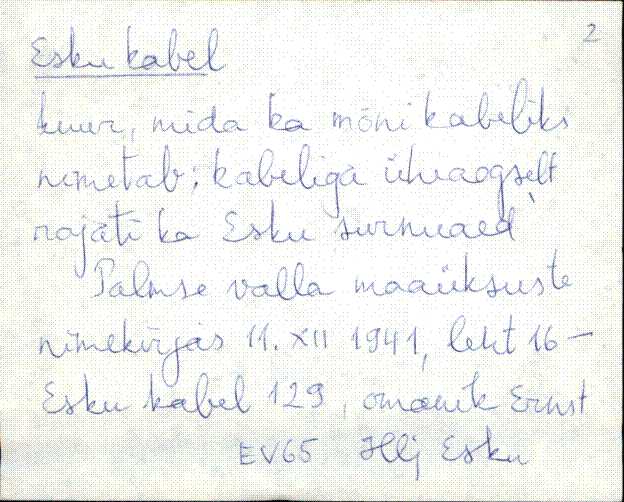 2
Esku kabel
kuur, mida ka mõni kabeliks
nimetab; kabeliga üheaegselt
rajati ka Esku surnuaed
Palmse valla maaüksuste
nimekirjas 11. XII 1941, leht 16 –
Esku kabel 129, omanik Ernst
EV65 Hlj Esku